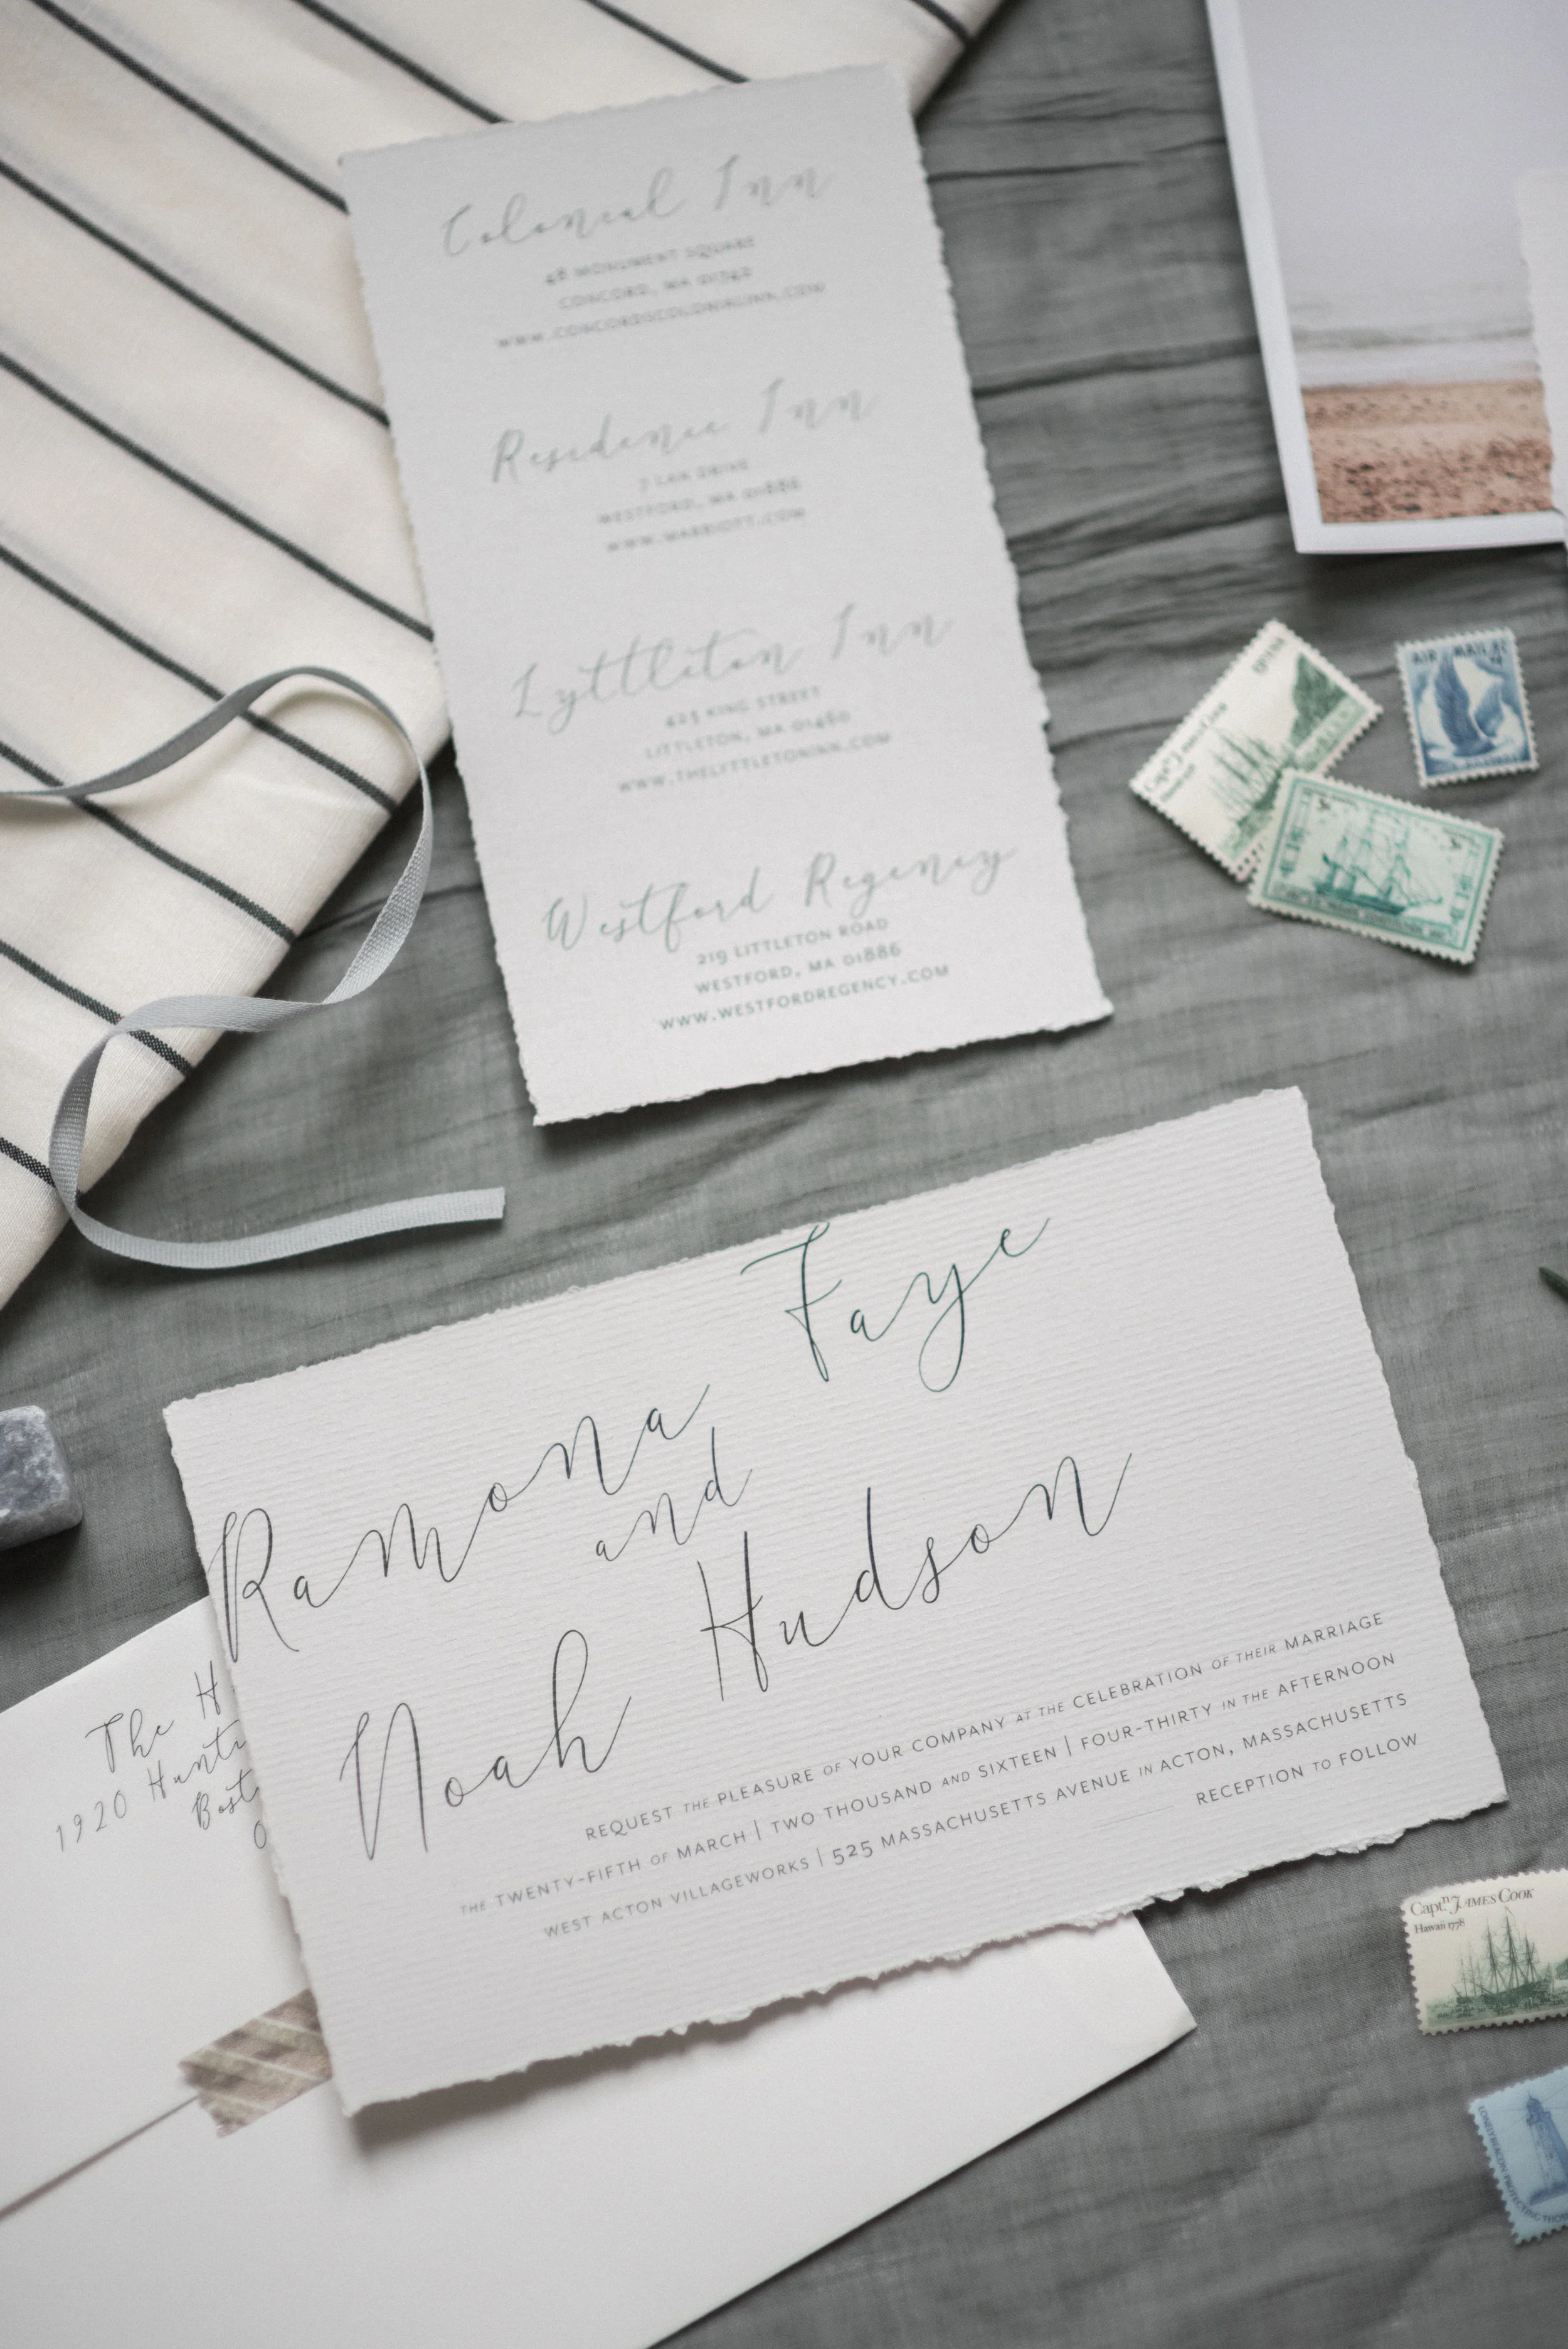 Colonial Inn
48 MONUMENT SQUARE
CONCORD, MA 01742
WWW.CONCORDSCOLONIALINN.COM
Residence Inn
7 LAN DRIVE
WESTFORD, MA 01886
WWW.MARRIOTT.COM
Lyttleton Inn
425 KING STREET
LITTLETON, MA 01460
WWW.THELYTTLETONINN.COM
Westford Regency
219 LITTLETON ROAD
WESTFORD, MA 01886
WWW.WESTFORDREGENCY.COM
Capt. James Cook
Hawaii
AIR MAIL
Ramona Faye
and
Noah Hudson
REQUEST THE PLEASURE OF YOUR COMPANY AT THE CELEBRATION OF THEIR MARRIAGE
THE TWENTY-FIFTH OF MARCH | TWO THOUSAND AND SIXTEEN | FOUR-THIRTY IN THE AFTERNOON
WEST ACTON VILLAGEWORKS | 525 MASSACHUSETTS AVENUE IN ACTON, MASSACHUSETTS
RECEPTION TO FOLLOW
The H
1920 Hunti
Bost
0
Captn. JAMES COOK
Hawaii 1778
LONELY BEACON PROTECTING THOS